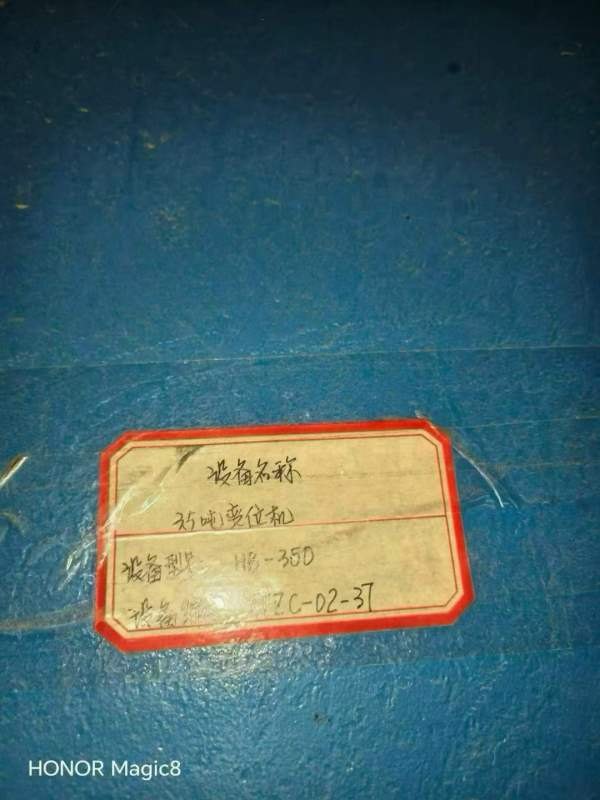 设备名称
35吨变位机
设备型号 HB-350
设备 ZC-02-37
HONOR Magic8